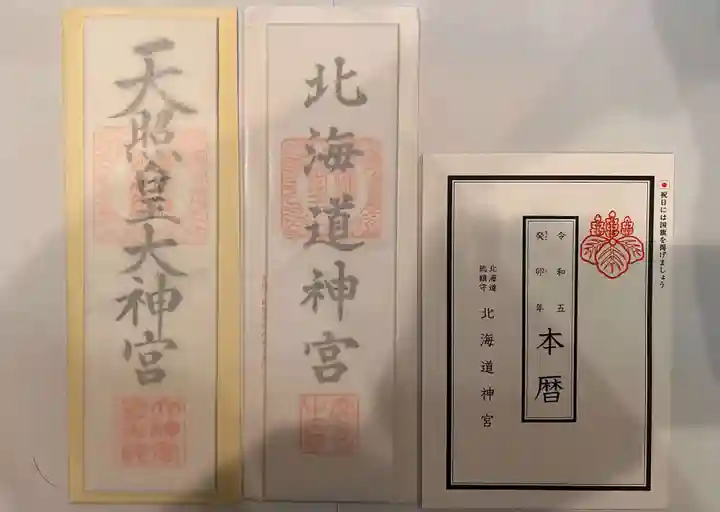 天照皇大神宮
北海道神宮
祝日には国旗を掲げましょう
令和五
癸卯年
本暦
北海道
総鎮守
北海道神宮